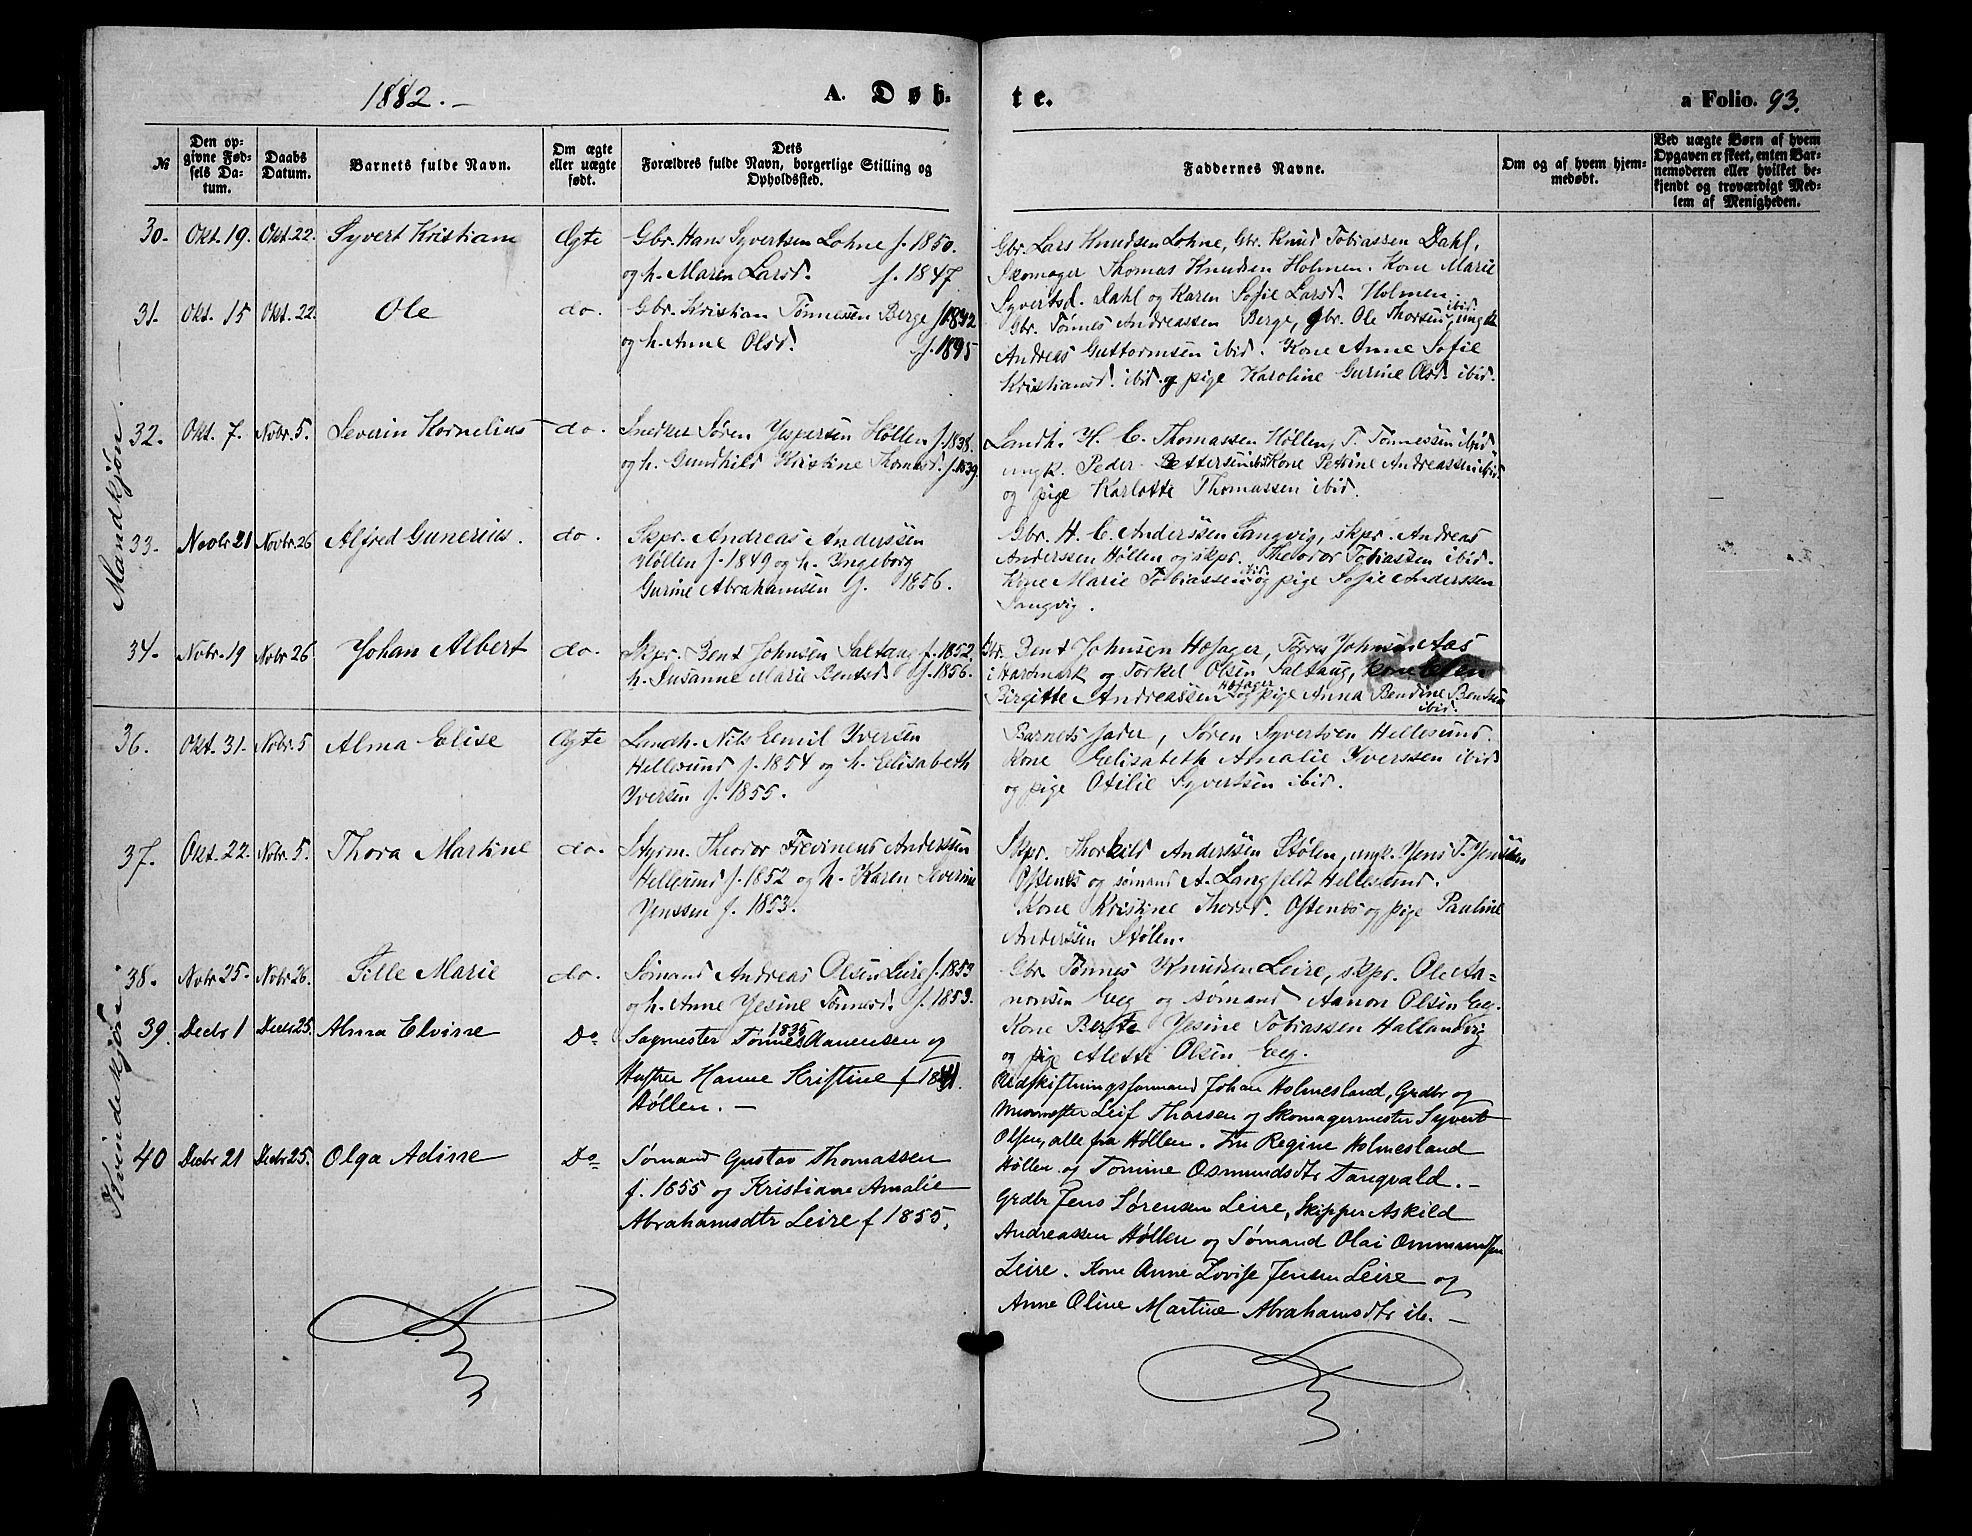 1882.-
A. Døb-
te.
a Folio. 93.
№
Den op-
givne Fød-
sels Da-
tum.
Daabs
Datum.
Barnets fulde Navn.
Om ægte
eller uægte
født.
Dets
Forældres fulde Navn, borgerlige Stilling og
Opholdssted.
Faddernes Navne.
Om og af hvem hjem-
medøbt.
Ved uægte Børn af hvem
Opgaven er skeet, enten Bar-
nemoderen eller hvilket be-
kjendt og troværdigt Med-
lem af Menigheden.
Mandkjøn.-
30. Okt. 19. Okt. 22. Syvert Kristian Ægte
Gbr. Hans Syvertsen Lohne f. 1850.
og h. Maren Larsd. f. 1847
Gbr. Lars Knudsen Lohne, Gbr. Knud Tobiassen Dahl.
Skomager Thomas Knudsen Holmen. Kone Marie
Syvertsd. Dahl og Karen Sofie Larsd. Holmen.
31. Okt. 15 Okt. 22. Ole do.
Gbr. Kristian Tønnessen Berge
og h. Anne Olsd.
Gbr. Tønnes Andreassen Berge, gbr. Ole Thorsen ibid. ungk.
Andreas Guttormsen ibid. Kone Anne Sofie
Kristiansd. ibid. og pige Karoline Gurine Olsd. ibid.
32. Okt. 7. Nobr. 5. Severin Kornelius do.
Snedker Søren Jespersen Høllen f. 1838.
og h. Gundhild Kristine Thomasd. f. 1839.
Landh. H. C. Thomassen Høllen, T. Tønnessen ibid
ungk. Peder Pettersen ibid Kone Petrine Andreassen ibid.
og pige Karlotte Thomassen ibid.
33. Novbr 21 Novbr. 26 Alfred Gunerius. do.
Skpr. Andreas Anderssen
Høllen f. 1849 og h. Ingeborg
Gurine Abrahamsen f. 1856.
Gbr. H. C. Anderssen Langvig, skpr. Andreas
Anderssen Høllen og skpr. Theodor Tobiassen ibid.
Kone Marie Tobiassen ibid. og pige Sofie Anderssen
Langvig.
34. Nobr. 19 Nobr 26 Johan Albert do.
Skpr. Bent Johnsen Saltaug f. 1852.
h. Susanne Marie Bentsd. f. 1856.
Gbr. Bent Johnsen Høfager, Tørres Johnsen Aas
i Hartmark og Torkel Olsen Saltaug, kone Ellen
Birgitte Andreassen Høfager og pige Anna Bendine Bentsen
ibid.
Kvindekjøn.
36. Okt. 31. Nobr. 5 Alma Elise Ægte
Landh. Nils Emil Iversen
Hellesund f. 1854 og h. Elisabeth
Iversen f. 1855.
Barnets fader, Søren Syvertsen Hellesund.
Kone Elisabeth Amalie Iverssen ibid
og pige Otilie Syvertsen ibid.
37. Okt. 22. Nobr. 5. Thora Martine do.
Styrm. Theodor Anderssen
Hellesund f. 1852 og h. Karen Severine
Jenssen f. 1853.
Skpr. Thorkild Anderssen Stølen, ungk. Jens T. Jenssen
Oftenes og sømand A. Langfeldt Hellesund.
Kone Kristine Thorsd. Oftenes og pige Pauline
Anderssen Stølen.
38. Nobr 25. Nobr. 26. Tille Marie do.
Sømand Andreas Olsen Leire f. 1853
og h. Anne Jesine Tønnesd. f. 1853.
Gbr. Tønnes Knudsen Leire, skpr. Ole Aa-
nonsen Eeg og sømand Aanon Olsen Eeg.
Kone Berte Jesine Tobiassen Hallandvig
og pige Alette Olsen Eeg.
39. Decbr 1 Decbr 25. Alma Elvine Do
Sagmester Tønnes 1835 Aanensen og
Hustru Hanne Kristine f 1841.
Høllen.-
Redskiftningsformand Johan Holmesland, Grdbr og
Murmester Leif Thorsen og Skomagermester Syvert
Olsen, alle fra Høllen. Fru Regine Holmesland
Høllen og Tomine Osmundsdtr Tangvald.-
40 Decbr 21 Decbr 25. Olga Adine Do
Sømand Gustav Thomassen
f. 1855 og Kristiane Amalie
Abrahamsdtr Leire f 1855.
Grdbr Jens Sørensen Leire, Skipper Askild
Andreassen Høllen og Sømand Olai Ommundsen
Leire. Kone Anne Lovise Jensen Leire og
Anne Oline Martine Abrahamsdtr ib.-